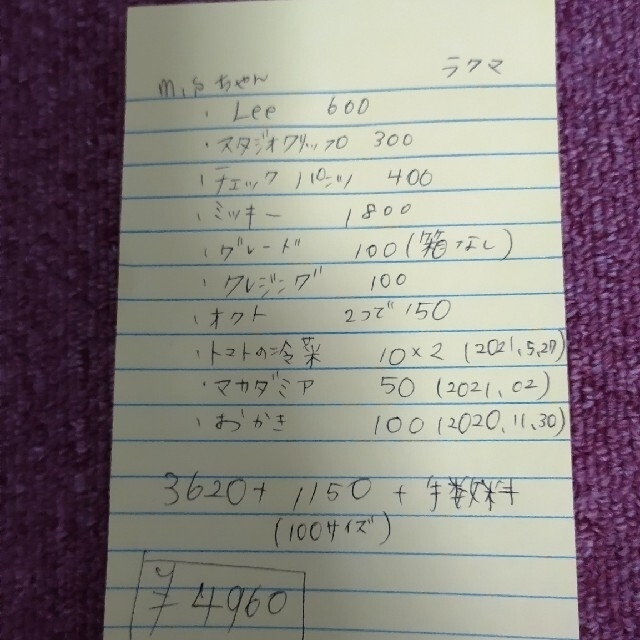 ラクマ
m.pちゃん
・Lee 600
・スタジオクリップ 300
・チェックパンツ 400
・ミッキー 1800
・グレード 100(箱なし)
・クレジング 100
・オクト 2つで150
・トマトの冷菜 10×2 (2021.5.27)
・マカダミア 50 (2021.02)
・おかき 100 (2020.11.30)
3620+1150+手数料
(100サイズ)
¥4960